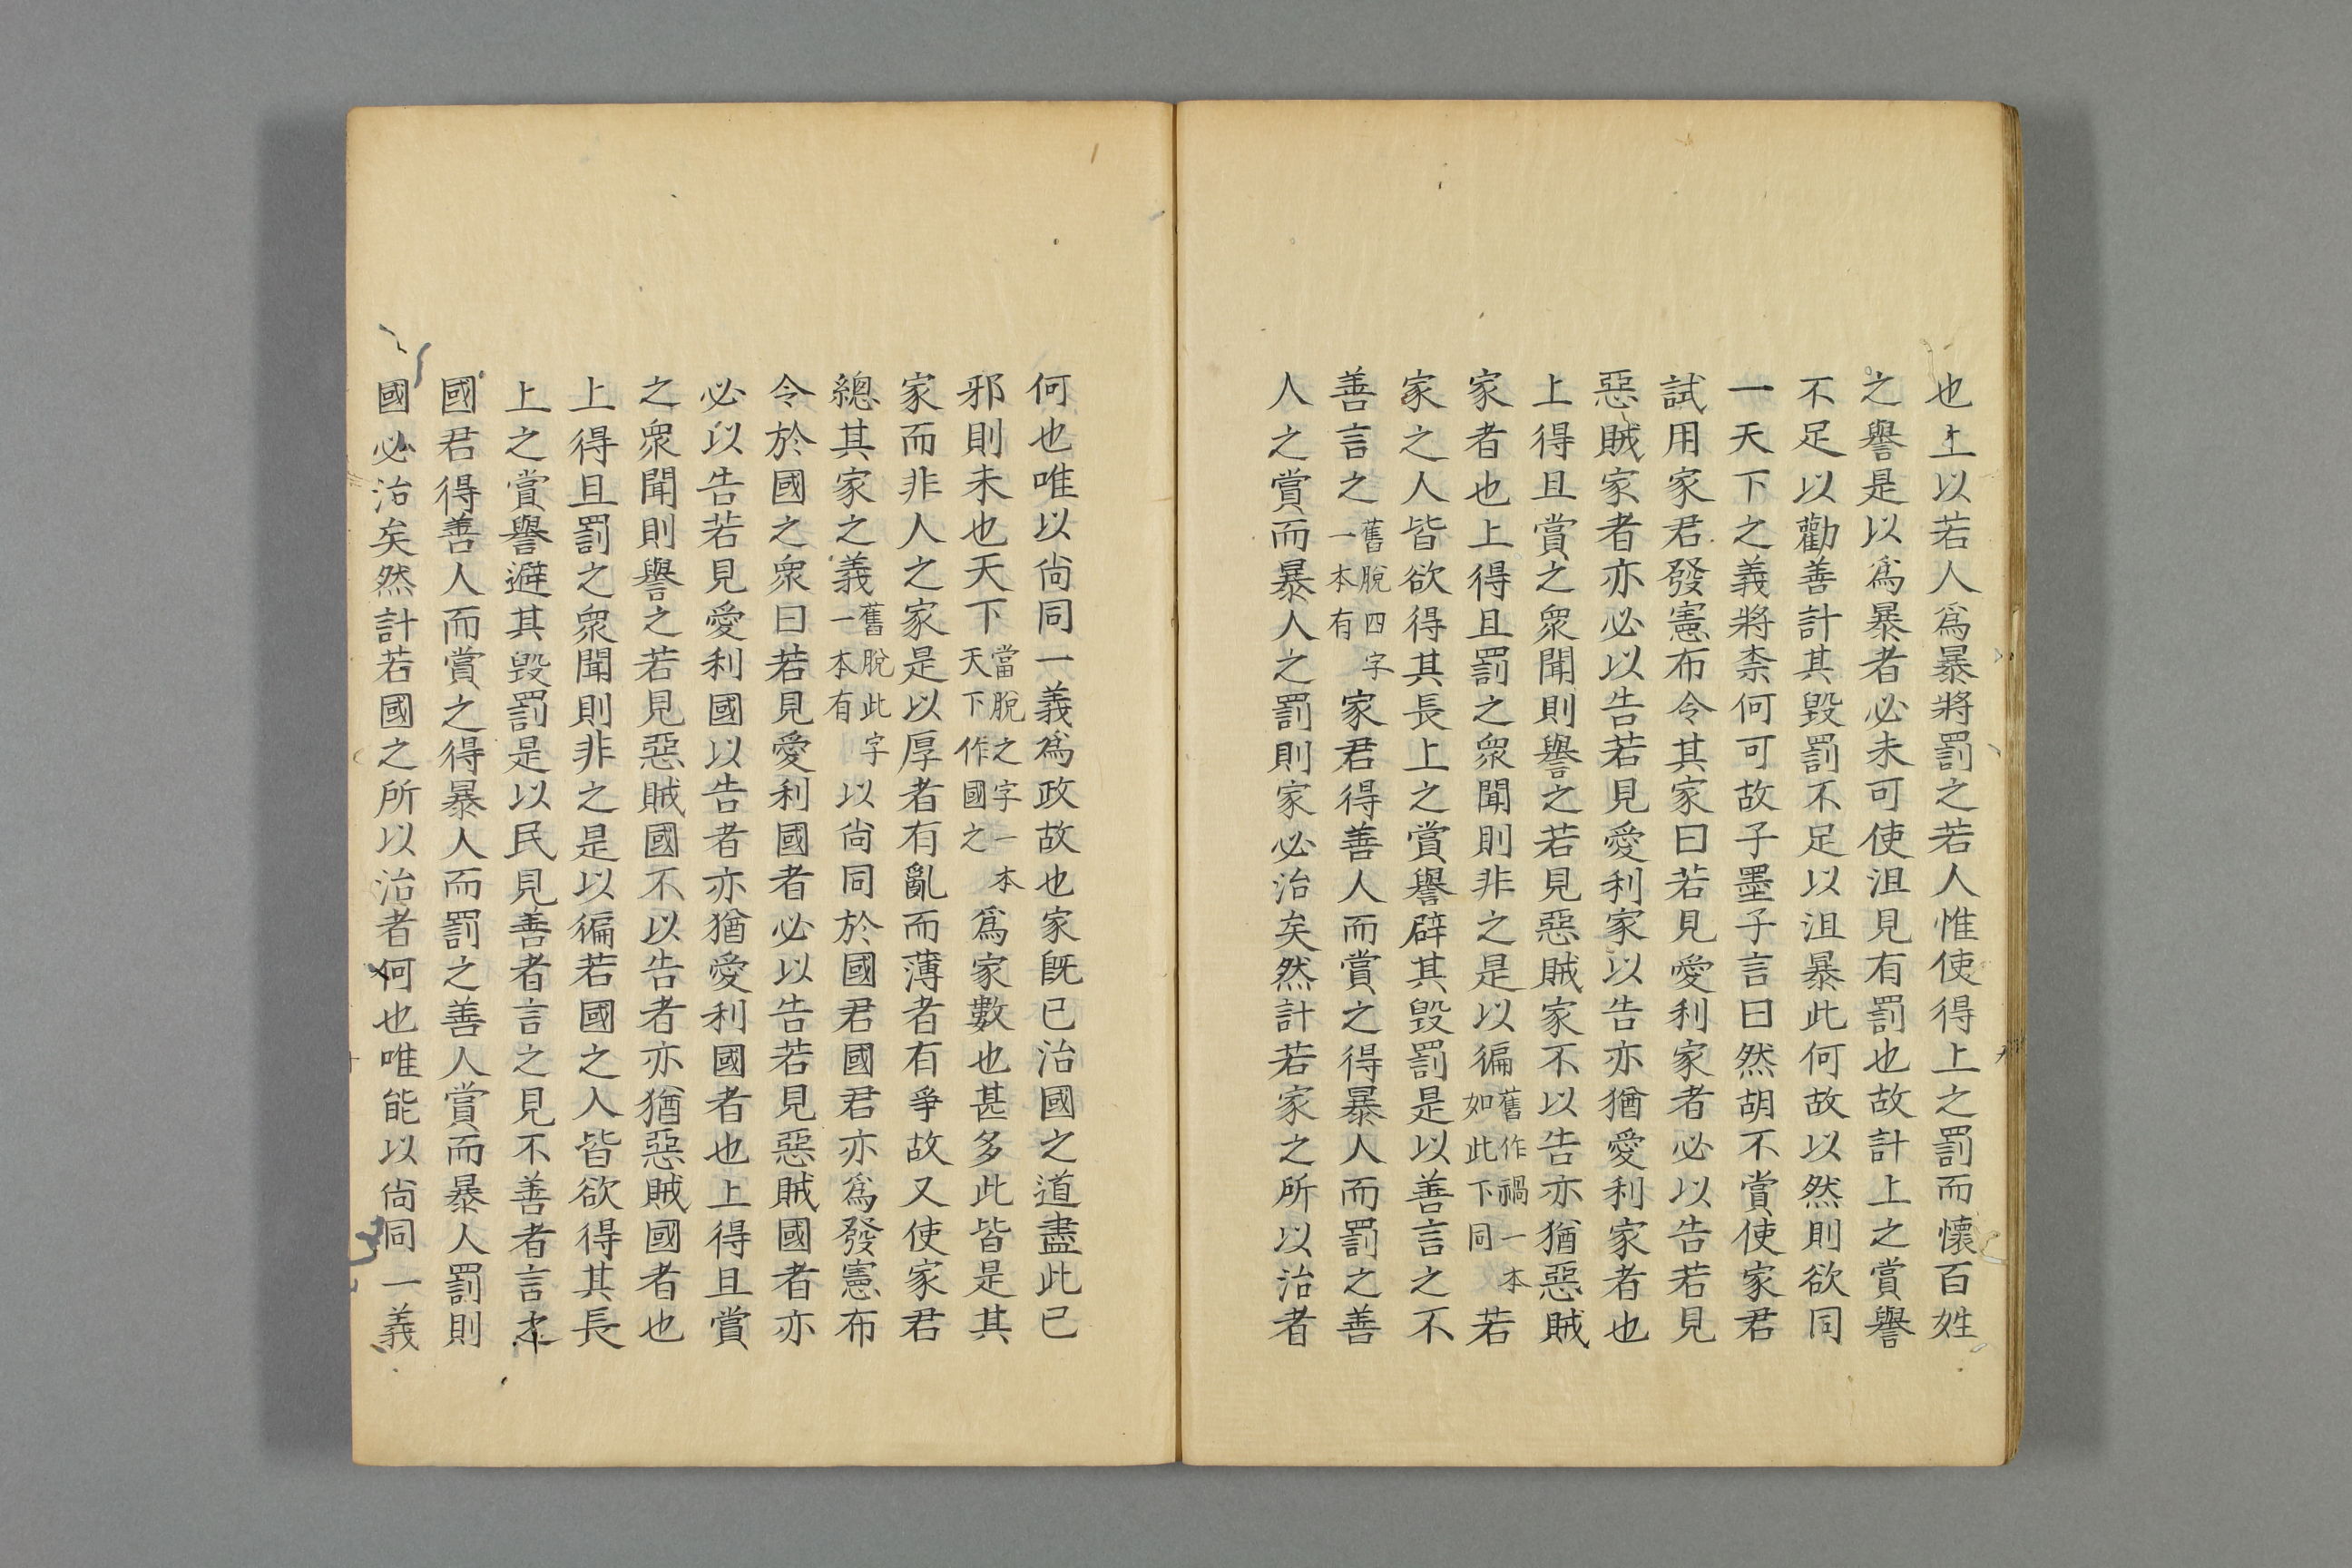 也上以若人爲暴將罰之若人惟使得上之罰而懷百姓
之譽是以爲暴者必未可使沮見有罰也故計上之賞譽
不足以勸善計其毀罰不足以沮暴此何故以然則欲同
一天下之義將柰何可故子墨子言曰然胡不賞使家君
試用家君發憲布令其家曰若見愛利家者必以告若見
惡賊家者亦必以告若見愛利家以告亦猶愛利家者也
上得且賞之衆聞則譽之若見惡賊家不以告亦猶惡賊
家者也上得且罰之衆聞則非之是以徧舊作禍一本如此下同若
家之人皆欲得其長上之賞譽辟其毀罰是以善言之不
善言之舊脫四字一本有家君得善人而賞之得暴人而罰之善
人之賞而暴人之罰則家必治矣然計若家之所以治者
何也唯以尙同一義爲政故也家旣已治國之道盡此已
邪則未也天下當脫之字一本天下作國之爲家數也甚多此皆是其
家而非人之家是以厚者有亂而薄者有爭故又使家君
總其家之義舊脫此字一本有以尙同於國君國君亦爲發憲布
令於國之衆曰若見愛利國者必以告若見惡賊國者亦
必以告若見愛利國以告者亦猶愛利國者也上得且賞
之衆聞則譽之若見惡賊國不以告者亦猶惡賊國者也
上得且罰之衆聞則非之是以徧若國之人皆欲得其長
上之賞譽避其毀罰是以民見善者言之見不善者言之
國君得善人而賞之得暴人而罰之善人賞而暴人罰則
國必治矣然計若國之所以治者何也唯能以尙同一義